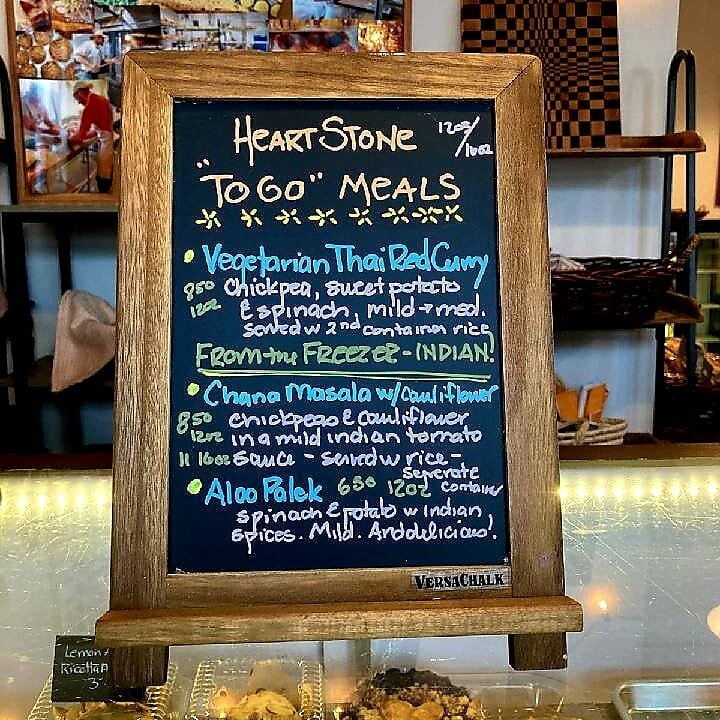 HEART STONE 12oz/16oz
"TO GO" MEALS
Vegetarian Thai Red Curry
850 Chickpea, sweet potato
12oz & spinach, mild → med.
served w 2nd container rice
FROM the FREEZER - INDIAN!
Chana Masala w/ Cauliflower
850 chickpeas & cauliflower
12oz in a mild indian tomato
11 16oz sauce - served w rice -
seperate
Aloo Palek 650 12oz container
spinach & potato w indian
spices. Mild. And delicious!
VERSACHALK
Lemon
RICOTTA
3